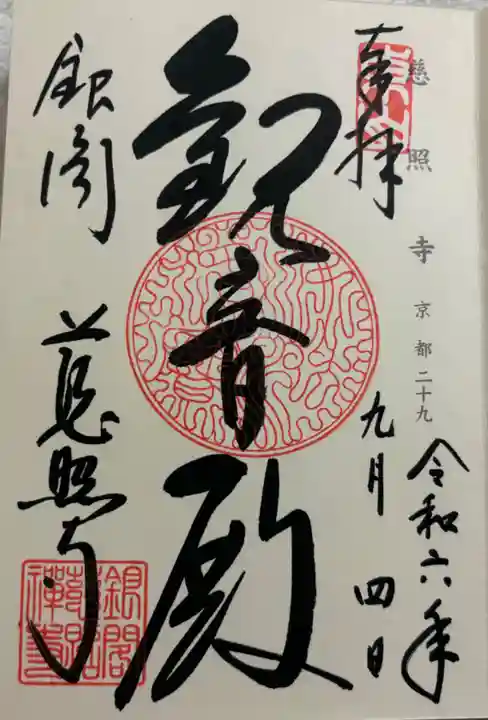 慈照寺 京都二十九
奉拝
令和六年
九月四日
観音殿
銀閣
慈照寺
銀閣
慈照
禅寺